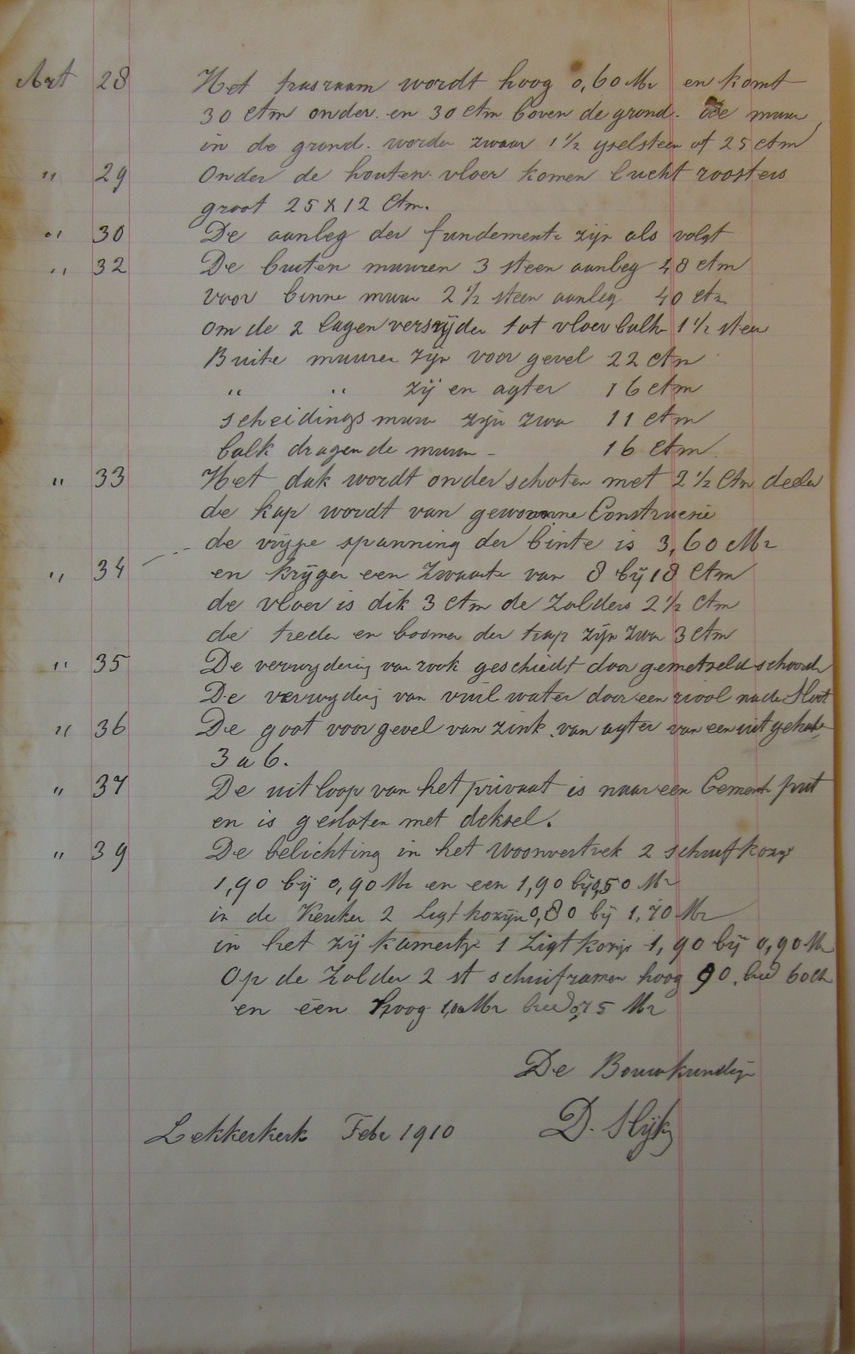 Art 28 Het trasraam wordt hoog 0,60 Mr en komt
30 ctm onder en 30 ctm boven de grond. De muur
in de grond. worden zwaar 1 1/2 yselsteen of 25 ctm
" 29 Onder de houten vloer komen lucht roosters
groot 25 x 12 Ctm.
" 30 De aanleg der fundemente zijn als volgt
" 32 De buiten muuren 3 steen aanleg 48 ctm
voor binne muur 2 1/2 steen aanleg 40 ctm
om de 2 lagen versnijden tot vloer balk 1 1/2 steen
Buite muuren zijn voor gevel 22 ctm
" " zij en agter 16 ctm
scheidings muur zijn zwa 11 ctm
balk dragende muur - 16 ctm
" 33 Het dak wordt onderschoten met 2 1/2 Ctm deelen
de kap wordt van gewonne Construcsie
de vrijje spanning der binte is 3,60 Mr
" 34 en krijgen een zwaarte van 8 bij 18 Ctm
de vloer is dik 3 ctm de Zolders 2 1/2 ctm
de treden en boomen der trap zijn zwa 3 ctm
" 35 De verwydering van rook geschiedt door gemetseld schoorsten
De verwyderig van vuil water door een riool na de Sloot
" 36 De goot voorgevel van zink. van agter van een uit geholde
3 a 6.
" 37 De uitloop van het privaat is naar een Cement put
en is gesloten met deksel.
" 39 De belichting in het woonvertrek 2 schuifkozy
1,90 bij 0,90 Mr en een 1,90 bij 0,50 Mr
in de Keuken 2 Ligt kozijn 0,80 bij 1,70 Mr
in het zij kamertje 1 Ligt kozijn 1,90 bij 0,90 Mr
Op de Zolder 2 st schuiframen hoog 90. bred 60 ctm
en één hoog 1,00 Mr breed 0,75 Mr
De Bouwkundige
Lekkerkerk Febr 1910 D. Slijk